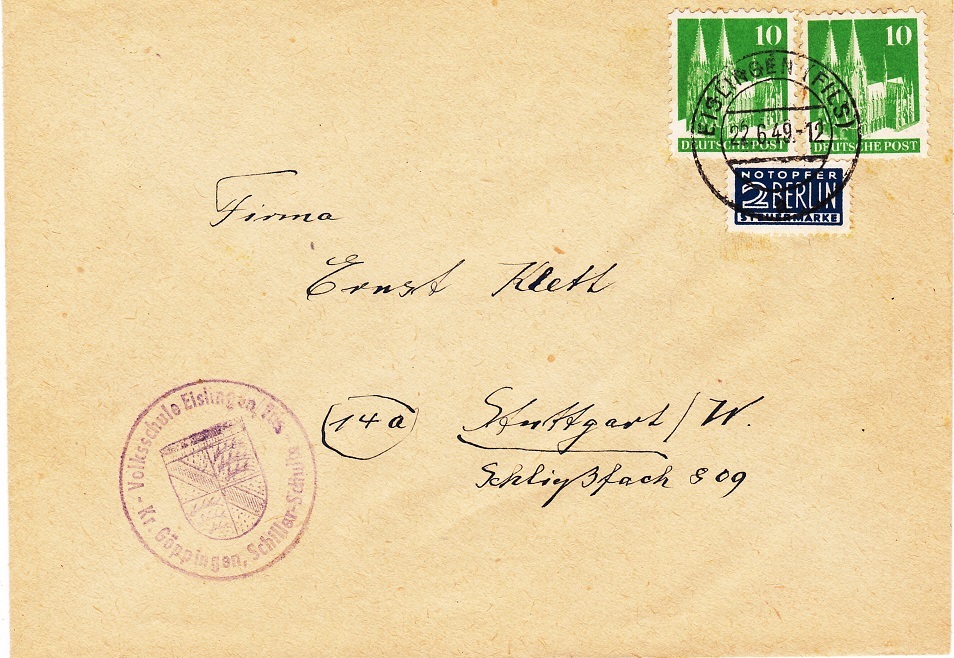 10 10
DEUTSCHE POST DEUTSCHE POST
EISLINGEN (FILS)
22.6.49.-12
NOTOPFER
2 BERLIN
STEUERMARKE
Firma
Ernst Klett
14a Stuttgart/W.
Schließfach 809
- Volksschule Eislingen/Fils -
Kr. Göppingen, Schiller-Schule